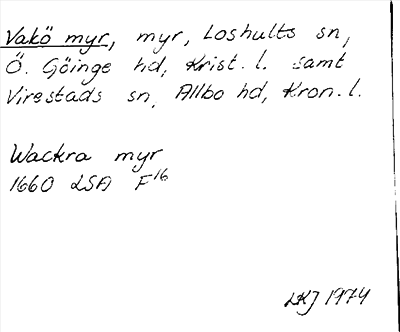 Vakö myr, myr, Loshults sn,
Ö. Göinge hd, Krist. l. samt
Virestads sn, Allbo hd, Kron. l.
Wackra myr
1660 LSA F16
LKJ 1974